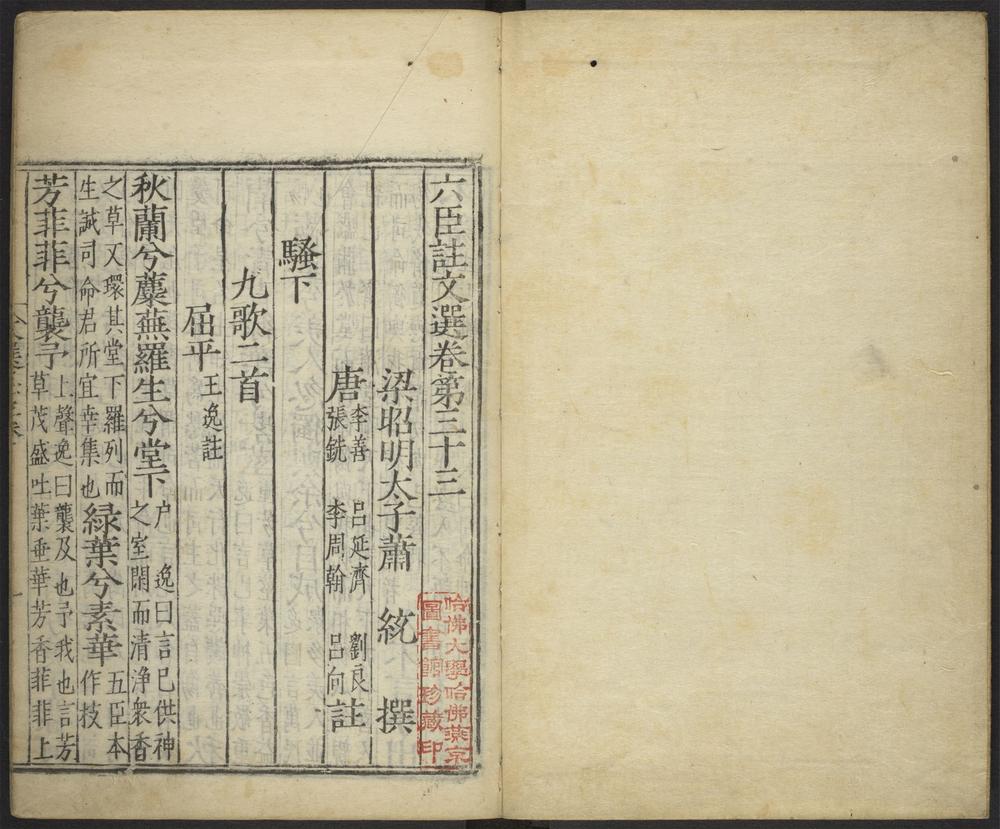 六臣註文選卷第三十三
梁昭明太子蕭 統 撰
唐李善 呂延濟 劉良
張銑 李周翰 呂向註
騷下
九歌二首
屈平王逸註
秋蘭兮蘪蕪羅生兮堂下逸曰言已供神
户之室閑而清浄衆香
之草又環其堂下羅列而
生誠司命君所宜幸集也緑葉兮素華五臣本
作技
芳菲菲兮襲予上聲逸曰襲及也予我也言芳
草茂盛吐葉垂華芳香菲菲上
哈佛大學哈佛燕京
圖書館珍藏印